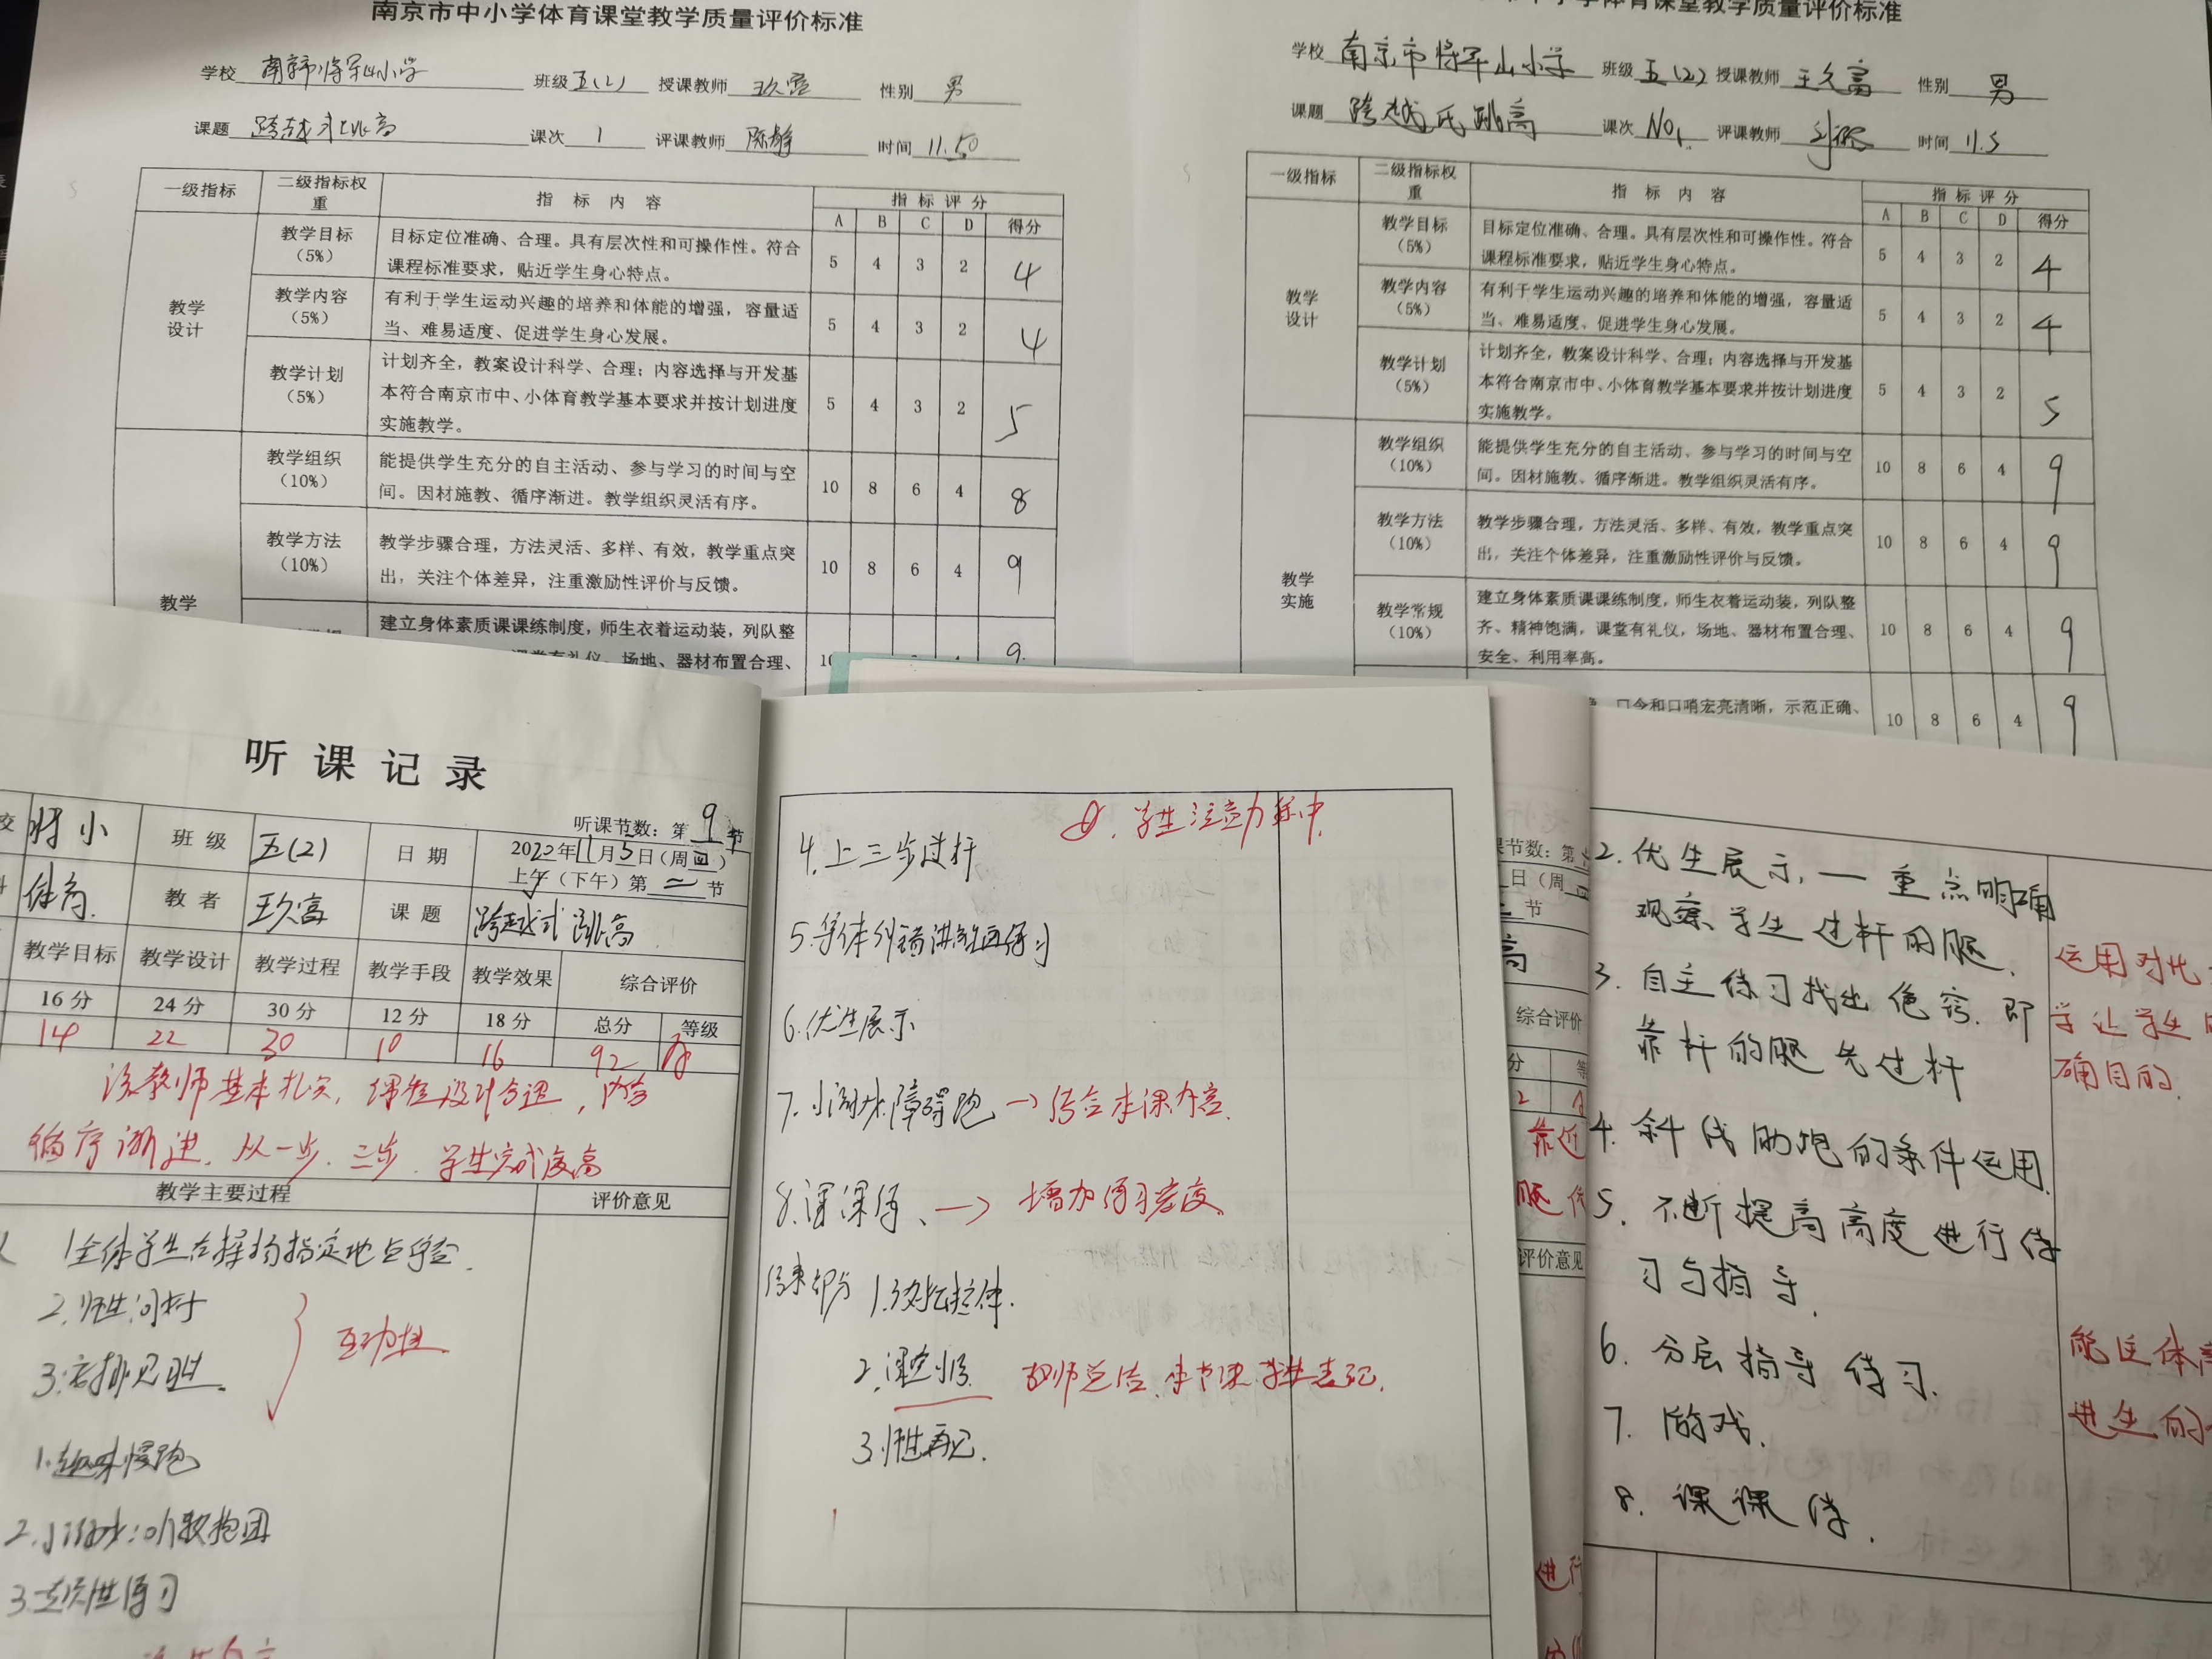 南京市中小学体育课堂教学质量评价标准
学校 南京市将军山小学 班级 五(2) 授课教师 王久富 性别 男
课题 跨越式跳高 课次 1 评课教师 陈静 时间 11.
一级指标 二级指标权重 指标内容 指标评分
A B C D 得分
教学设计
教学目标(5%) 目标定位准确、合理。具有层次性和可操作性。符合
课程标准要求，贴近学生身心特点。 5 4 3 2 4
教学内容(5%) 有利于学生运动兴趣的培养和体能的增强，容量适
当、难易适度、促进学生身心发展。 5 4 3 2 4
教学计划(5%) 计划齐全，教案设计科学、合理；内容选择与开发基
本符合南京市中、小体育教学基本要求并按计划进度
实施教学。 5 4 3 2 5
教学
教学组织(10%) 能提供学生充分的自主活动、参与学习的时间与空
间。因材施教、循序渐进。教学组织灵活有序。 10 8 6 4 8
教学方法(10%) 教学步骤合理，方法灵活、多样、有效，教学重点突
出，关注个体差异，注重激励性评价与反馈。 10 8 6 4 9
建立身体素质课课练制度，师生衣着运动装，列队整
场地、器材布置合理、 9
体育课堂教学质量评价标准
学校 南京市将军山小学 班级 五(2) 授课教师 王久富 性别 男
课题 跨越氏跳高 课次 No1. 评课教师 时间 11.5
一级指标 二级指标权重 指标内容 指标评分
A B C D 得分
教学设计
教学目标(5%) 目标定位准确、合理。具有层次性和可操作性。符合
课程标准要求，贴近学生身心特点。 5 4 3 2 4
教学内容(5%) 有利于学生运动兴趣的培养和体能的增强，容量适
当、难易适度、促进学生身心发展。 5 4 3 2 4
教学计划(5%) 计划齐全，教案设计科学、合理；内容选择与开发基
本符合南京市中、小体育教学基本要求并按计划进度
实施教学。 5 4 3 2 5
教学实施
教学组织(10%) 能提供学生充分的自主活动、参与学习的时间与空
间。因材施教、循序渐进。教学组织灵活有序。 10 8 6 4 9
教学方法(10%) 教学步骤合理，方法灵活、多样、有效，教学重点突
出，关注个体差异，注重激励性评价与反馈。 10 8 6 4 9
教学常规(10%) 建立身体素质课课练制度，师生衣着运动装，列队整
齐、精神饱满，课堂有礼仪，场地、器材布置合理、
安全、利用率高。 10 8 6 4 9
口令和口哨宏亮清晰，示范正确、 10 8 6 4 9
听课记录
听课节数：第9节
校 将小 班级 五(2) 日期 2022年11月5日(周四)
上午(下午)第二节
体育 教者 王久富 课题 跨越式跳高
教学目标 教学设计 教学过程 教学手段 教学效果 综合评价
16分 24分 30分 12分 18分 总分 等级
14 22 30 10 16 92
该教师基本扎实，课程设计合适，内容
循序渐进，从一步、三步，学生完成度高
教学主要过程 评价意见
1全体学生在操场指定地点集合.
2.师生问好
3.安排见习生. 互动性
1.趣味慢跑
2.小游戏：听数抱团
3.专项性练习
①.学生注意力集中
4.上三步过杆
5.集体纠错讲解再练习
6.优生展示
7.小游戏障碍跑 → 结合本课内容.
8.课课练、→ 增加练习密度
结束部分 1.放松拉伸.
2.课堂小结 教师总结、本节课学生表现.
3.师生再见.
课节数：第
日(周
节
高
综合评价
分
2
靠近
腿
评价意见
进行
2.优生展示，一重点明确
观察学生过杆的腿.
3.自主练习找出绝窍.即
靠杆的腿先过杆
运用对比
学让学生
确目的.
4.斜线助跑的条件运用.
5.不断提高高度进行练
习与指导.
6.分层指导练习.
7.游戏.
8.课课练.
能
进生的